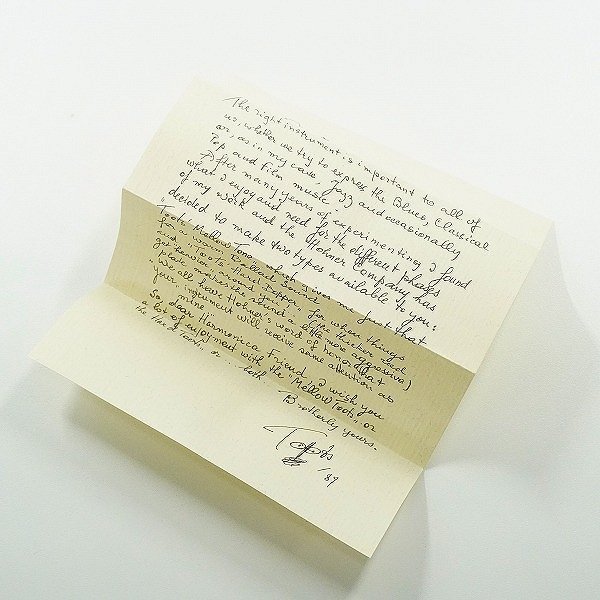 The right instrument is important to all of
us, whether we try to express the Blues, Classical
or, as in my case, Jazz and occasionally
Pop and film music.
After many years of experimenting I found
what I enjoy and need for the different
of my work and the Hohner Company has
decided to make two types available to you:
"Toots Mellow Tone" which gives me just that
for a warm Ballad Sound
and "Toots Hard Bopper" for when things
get tougher
and a little more aggressive)
We all have Hohner's word of honor that
your instrument will receive same attention as
mine.
So, dear Harmonica Friend, I wish you
a lot of enjoyment with the "Mellow Toots" or
the Toots" or ... both.
Brotherly yours.
Toots
/89